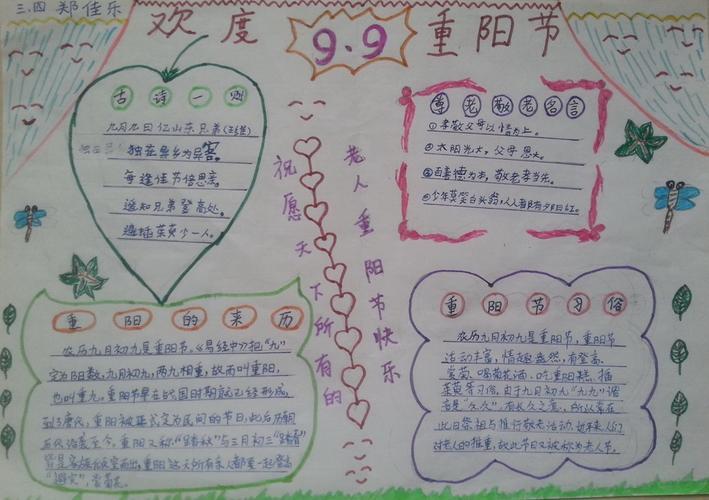 三.四 郑佳乐
欢度 9.9 重阳节
古诗一则
九月九日忆山东兄弟(王维)
独在异乡为异客。
每逢佳节倍思亲。
遥知兄弟登高处。
遍插茱萸少一人。
祝愿天下所有的
老人重阳节快乐
尊老敬老名言
①孝敬父母以情为上。
②太阳光大，父母恩大。
③百善德为本，敬老孝当先。
④少年莫笑白头翁，人人都有夕阳红。
重阳的来历
农历九月初九是重阳节。《易经中》把“九”
定为阳数，九月初九，两九相重，故而叫重阳，
也叫重九，重阳节早在战国时期就已经形成，
到了唐代，重阳被正式定为民间的节日，此后历朝
历代沿袭至今，重阳又称“踏秋”与三月初三“踏春”
皆是家族倾室而出，重阳这天所有亲人都要一起登高
“避灾”，赏菊花。
重阳节习俗
农历九月初九是重阳节，重阳节
活动丰富，情趣盎然，有登高、
赏菊、喝菊花酒、吃重阳糕、插
茱萸等习俗。由于九月初九“九九”谐
音是“久久”，有长久之意，所以常在
此日祭祖与推行敬老活动。如今人们
对老人的推重，故此节日又被称为老人节。